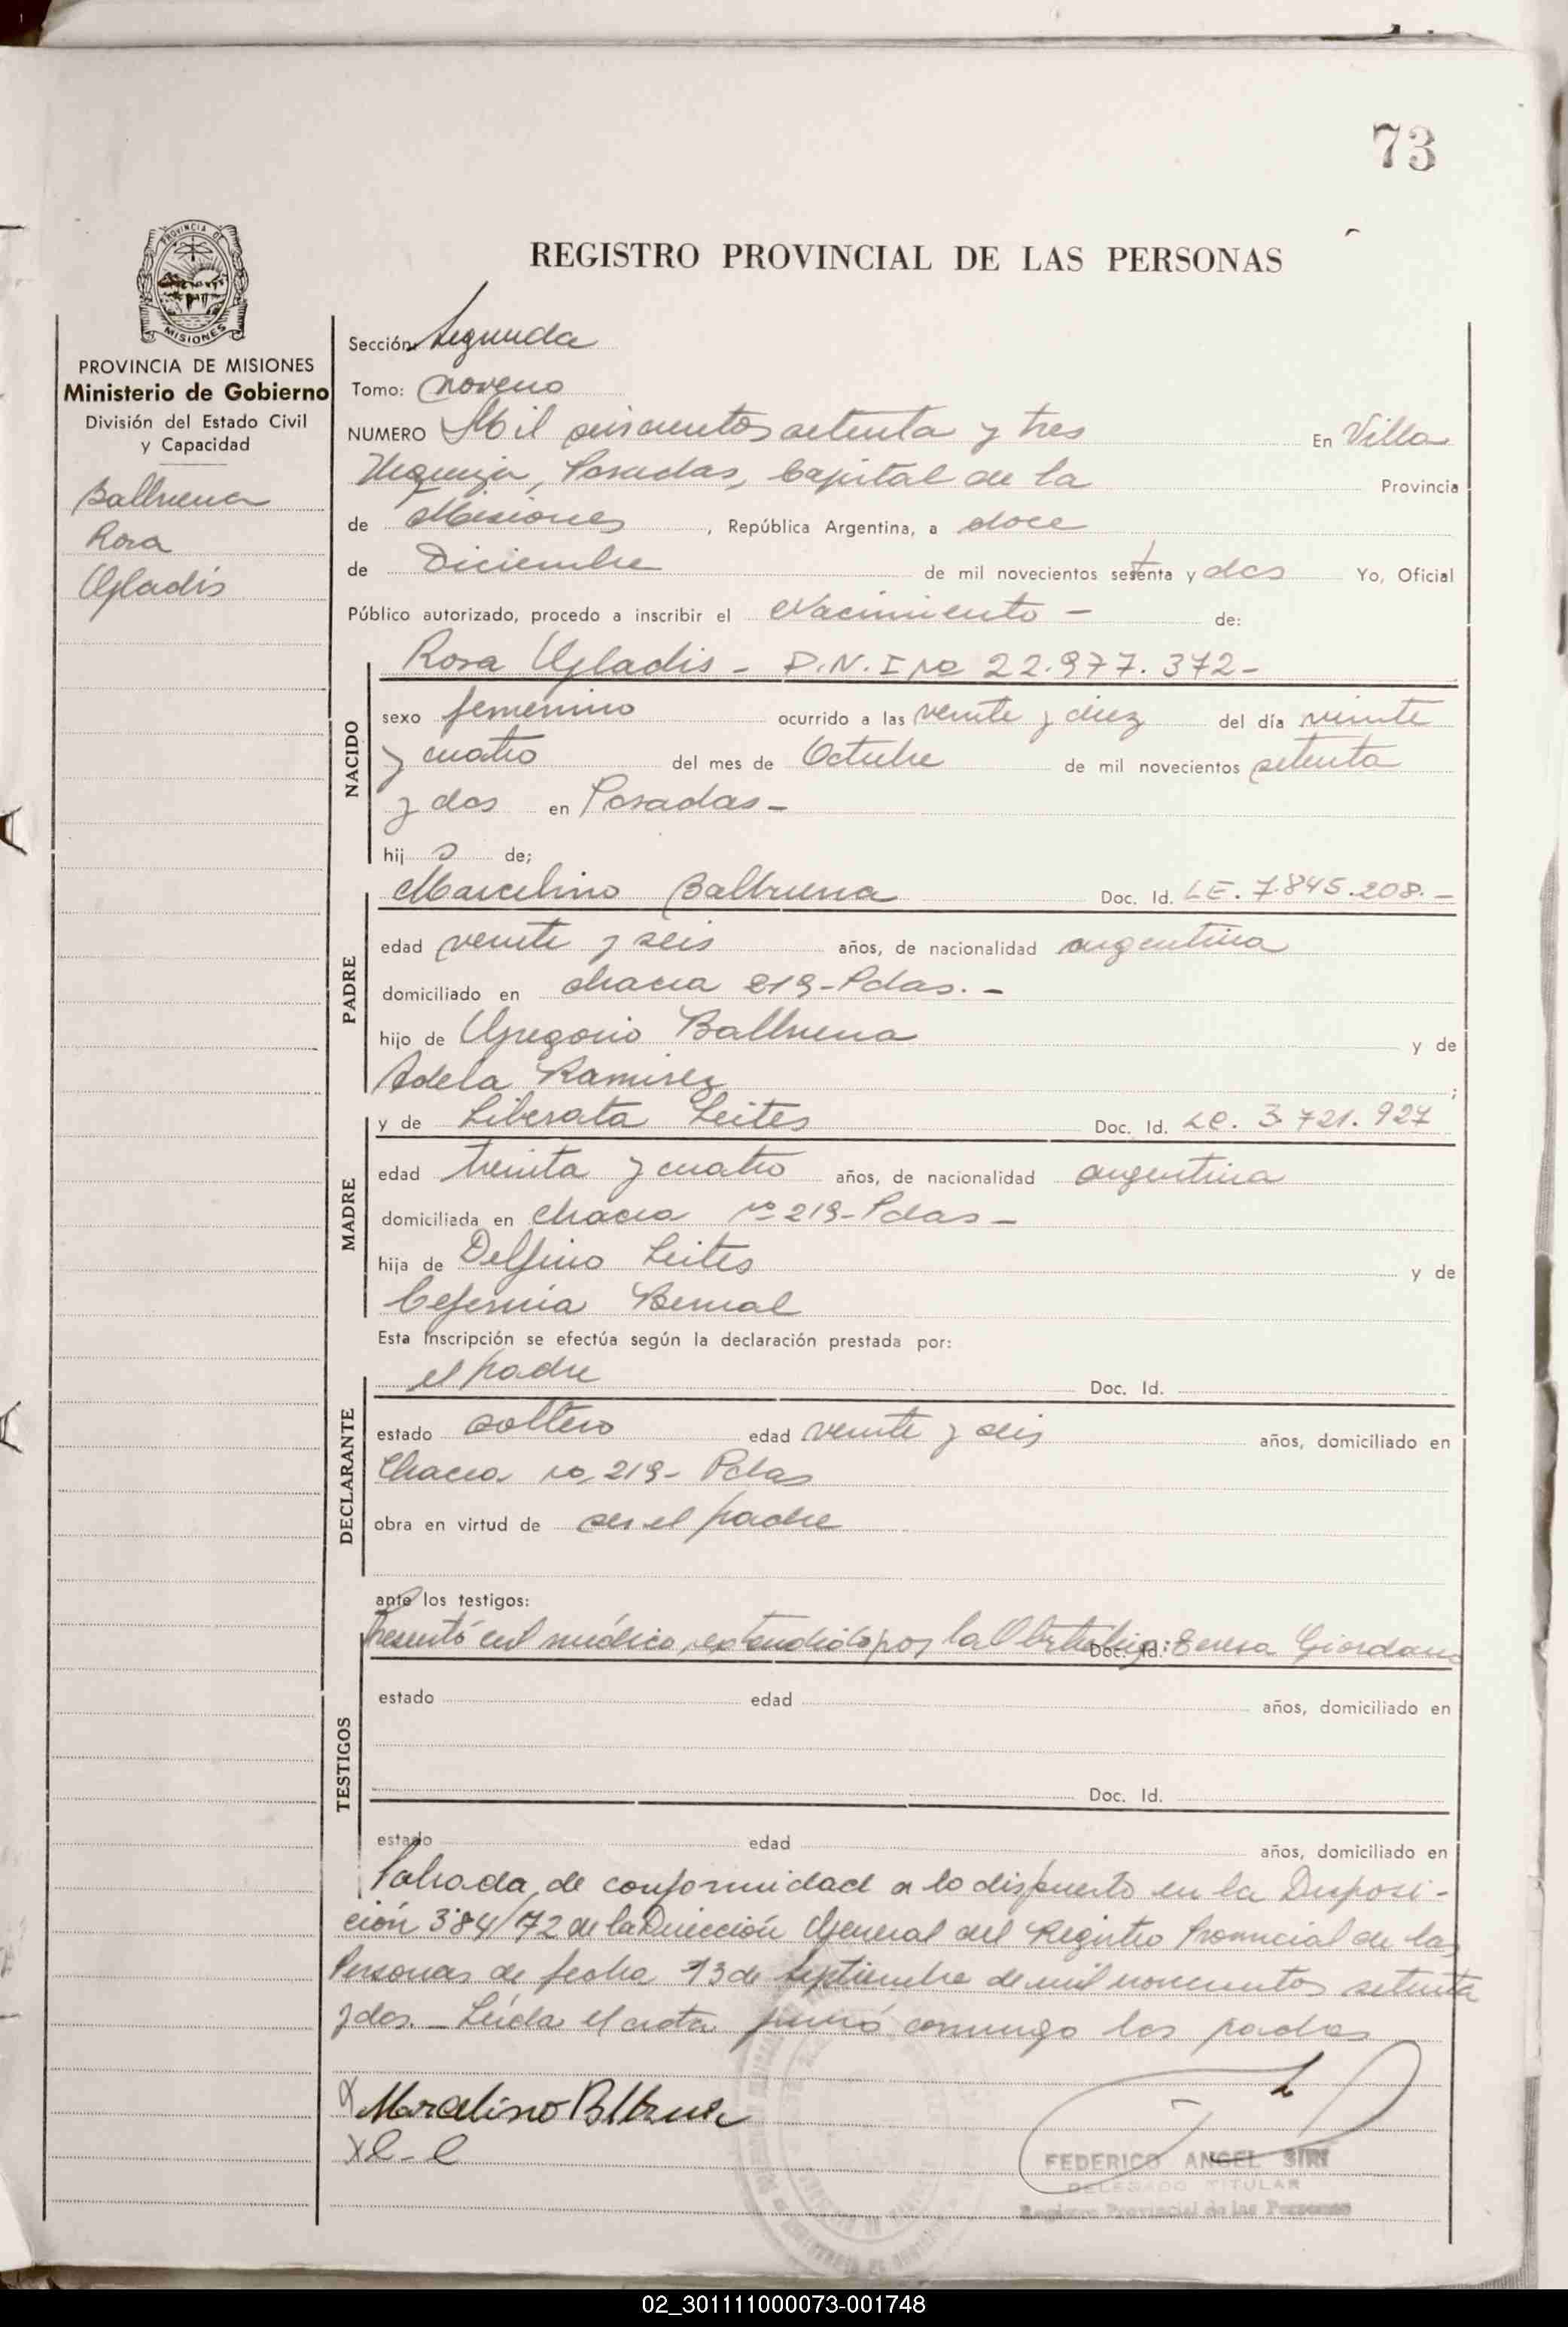 73
PROVINCIA DE
MISIONES
REGISTRO PROVINCIAL DE LAS PERSONAS
PROVINCIA DE MISIONES
Ministerio de Gobierno
División del Estado Civil
y Capacidad
Balbuena
Rosa
Gladis
Sección: Segunda
Tomo: noveno
NUMERO Mil seiscientos setenta y tres En Villa
Urquiza, Posadas, Capital de la Provincia
de Misiones, República Argentina, a doce
de Diciembre de mil novecientos setenta y dos Yo, Oficial
Público autorizado, procedo a inscribir el Nacimiento - de:
NACIDO
Rosa Gladis - D.N.I no 22.977.372-
sexo femenino ocurrido a las veinte y diez del día veinte
y cuatro del mes de Octubre de mil novecientos setenta
y dos en Posadas -
hij a de;
PADRE
Marcelino Balbuena Doc. Id. LE. 7.845.208. -
edad veinte y seis años, de nacionalidad argentina
domiciliado en chacra 219-Pdas. -
hijo de Gregorio Balbuena y de
Adela Ramirez ;
MADRE
y de Liberata Leites Doc. Id. LC. 3.721.927
edad treinta y cuatro años, de nacionalidad argentina
domiciliada en chacra no 219-Pdas -
hija de Delfino Leites y de
Ceferina Bernal
Esta Inscripción se efectúa según la declaración prestada por:
DECLARANTE
el padre Doc. Id.
estado soltero edad veinte y seis años, domiciliado en
Chacra no 219- Pdas
obra en virtud de ser el padre
ante los testigos:
TESTIGOS
Presentó cert médico, extendido por la Obstetrica: Teresa Giordano
Doc. Id.
estado edad años, domiciliado en
Doc. Id.
estado edad años, domiciliado en
Labrada de conformidad a lo dispuesto en la Disposi-
ción 384/72 de la Dirección General del Registro Provincial de las
Personas de fecha 13 de Septiembre de mil novecientos setenta
y dos. - Leída el acta firmó conmigo los padres
X Marcelino Balbuena
X L-L
FEDERICO ANGEL SIRI
DELEGADO TITULAR
Registro Provincial de las Personas
02_301111000073-001748